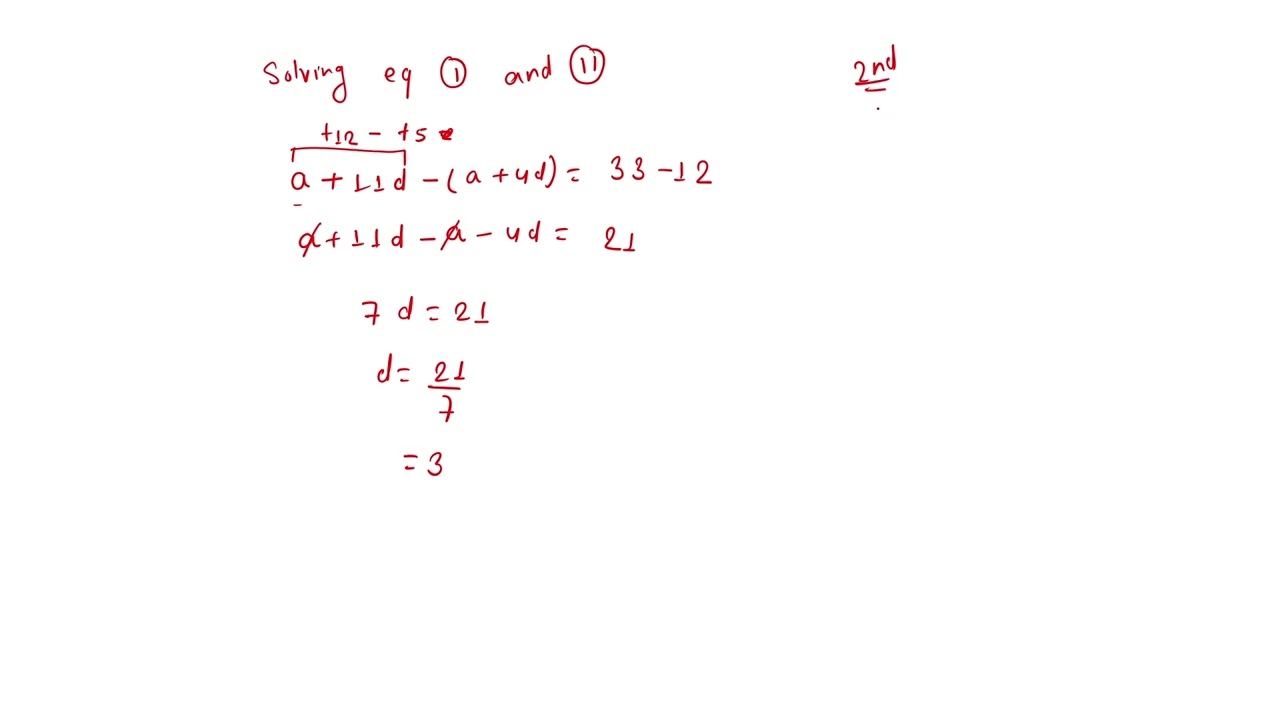 Solving eq ① and ⑪
2nd
t12 - t5
a + 11d - (a + 4d) = 33 - 12
a + 11d - a - 4d = 21
7d = 21
d = 21/7
= 3